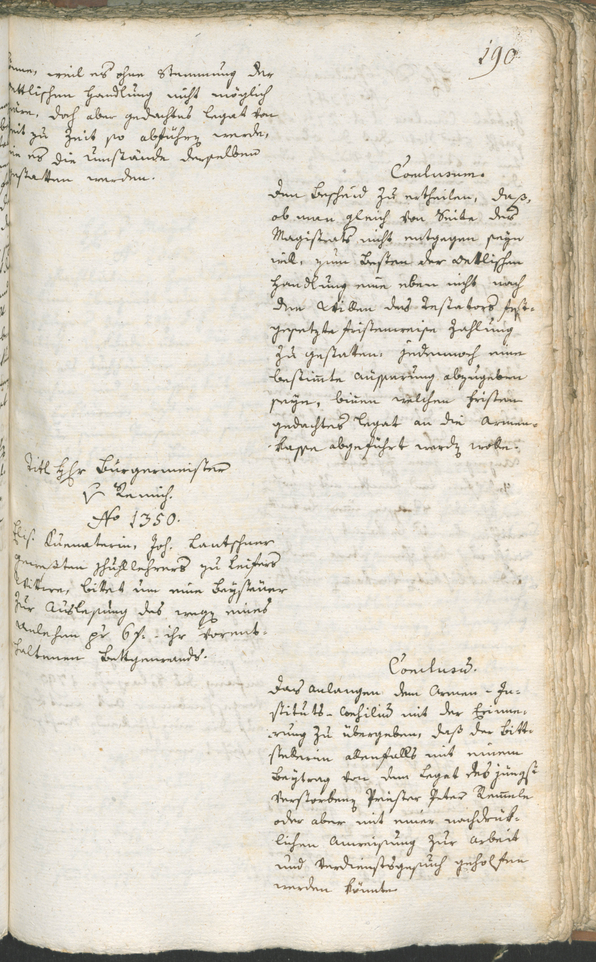 190.
könne, weil es ohne Stemmung der
Oettlischen Handlung nicht möglich
wäre, doch aber gedachtes Legat von
Zeit zu Zeit so abführen werde,
wie es die Umstände derselben
gestatten werden.
Conclusum.
dem Bescheid zu ertheilen, daß,
ob man gleich von Seite des
Magistrats nicht entgegen seyn
will, zum Besten der Oettlischen
Handlung eine eben nicht nach
dem Willen des Testators fest-
gesetzte fristenweise Zahlung
zu gestatten: jedennoch eine
bestimte Äusserung abzugeben
seye, binen welchen Fristen
gedachtes Legat an die Armen-
kasse abgeführt werden wolle.
Titl Hr Bürgermeister
v Remich.
No 1350.
Elis. Kuenaterin, Joh. Lantschner
gewesten Schullehrers zu Leifers
Wittwe, bitet um eine Beysteuer
zur Auslesung des wegen eines
Anlehen pr 6 f. ihr vorent-
haltenen Bettgewands.
Conclusum.
Das Anlangen dem Armen-In-
stituts-Consilium mit der Erinne-
rung zu übergeben, daß der Bitt-
stellerin allenfalls mit einem
Beytrag von dem Legat des jüngst
verstorbenen Priester Peter Remele
oder aber mit einer nachdrük-
lichen Anweisung zur Arbeit
und Verdienstgesuch geholfen
werden könnte.